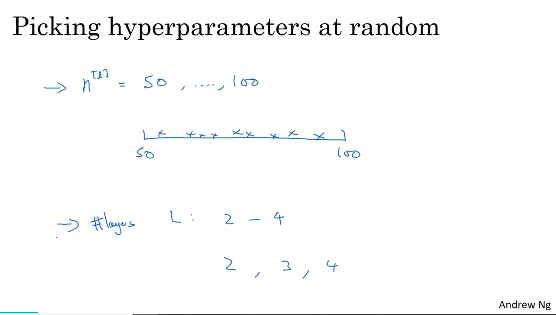 Picking hyperparameters at random
→ n[l] = 50, ...., 100
50 100
→ #layers L: 2 - 4
2, 3, 4
Andrew Ng